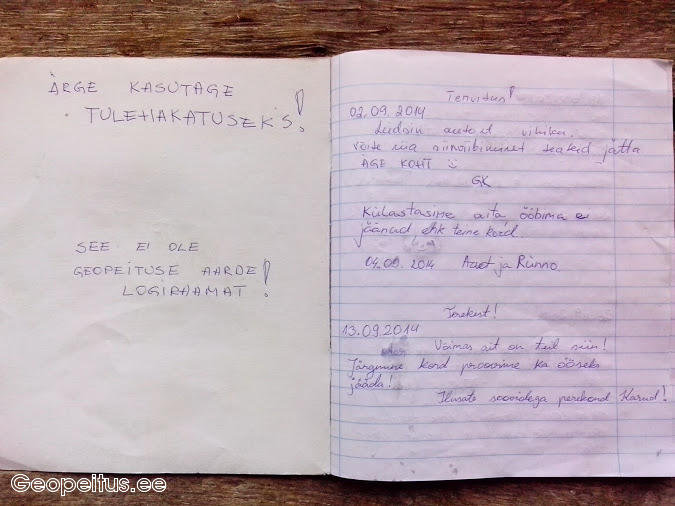 ÄRGE KASUTAGE
TULEHAKATUSEKS!
SEE EI OLE
GEOPEITUSE AARDE
LOGIRAAMAT!
Tervitus!
02.09.2014
Leidsin autost vihiku.
võite siia siinviibimisest teateid jätta
ÄGE KOHT
GK
Külastasime aita, ööbima ei
jäänud ehk teine kord.
04.09.2014 Anet ja Rünno
Terekest!
13.09.2014
Võimas ait on teil siin!
Järgmine kord proovime ka ööseks
jääda!
Ilusate soovidega perekond Karud!
Geopeitus.ee